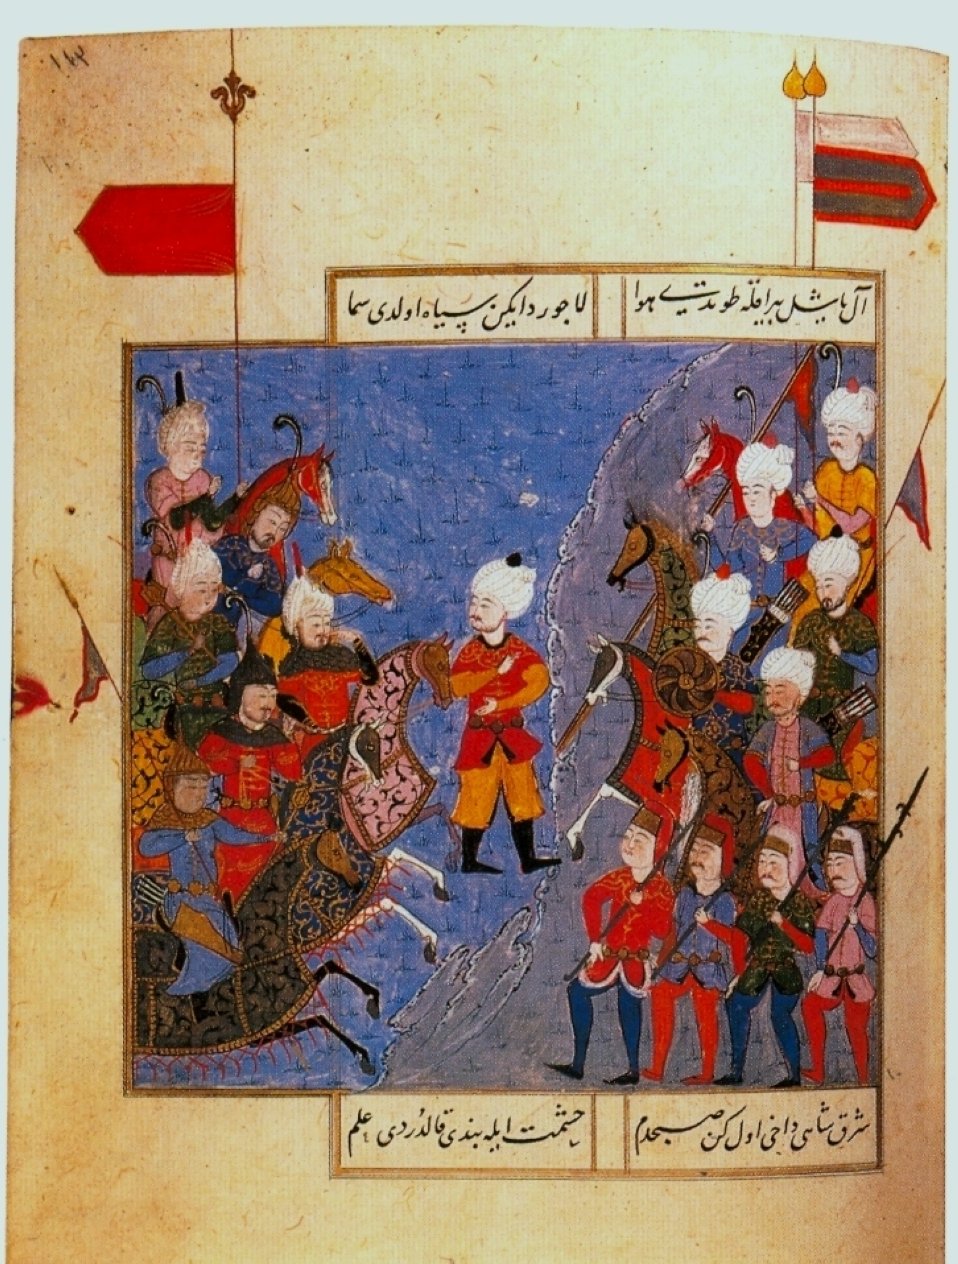 آل یاشیل بیراقله طوندی هوا لاجورد ایکن سیاه اولدی سما
شرق شاهی داخی اول کن صبحدم حشمت ایله بندی قالدردی علم